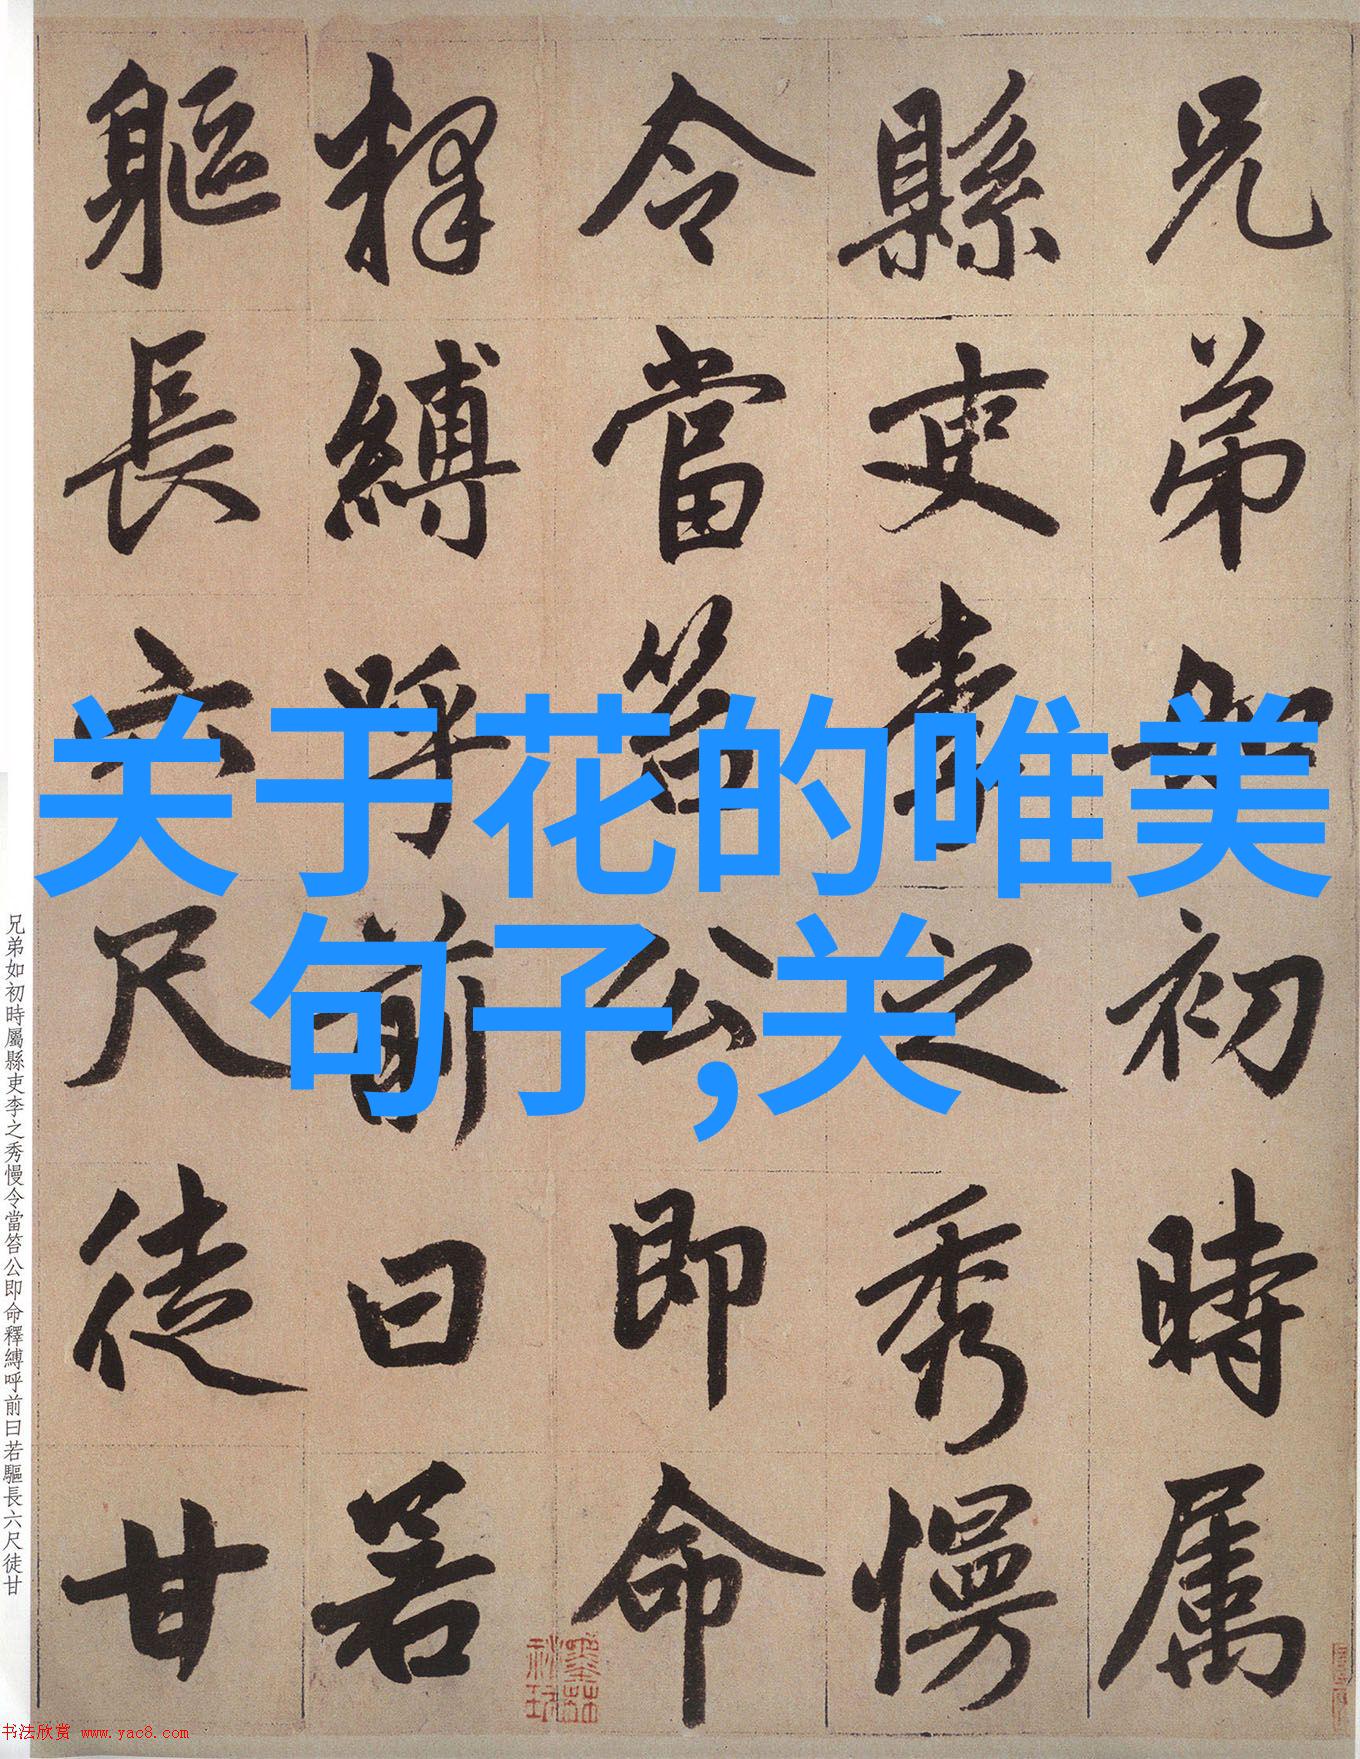 关于花的唯美
句子,关
兄弟如初時属
縣吏李之秀慢
令當笞公即命
釋縛呼前曰若
軀長六尺徒甘
兄弟如初時屬縣吏李之秀慢令當笞公即命釋縛呼前曰若驅長六尺徒甘
书法欣赏 www.yac8.com